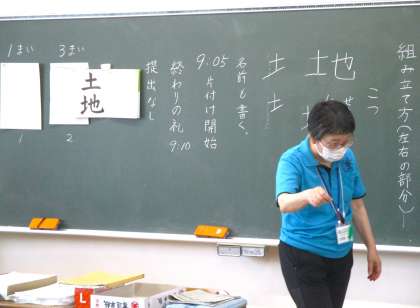 組み立て方(左右の部分)
三つ
土地
土
地
名前も書く。
9:05 片付け開始
終わりの礼 9:10
提出なし
土地
3まい
2
1まい
1
L